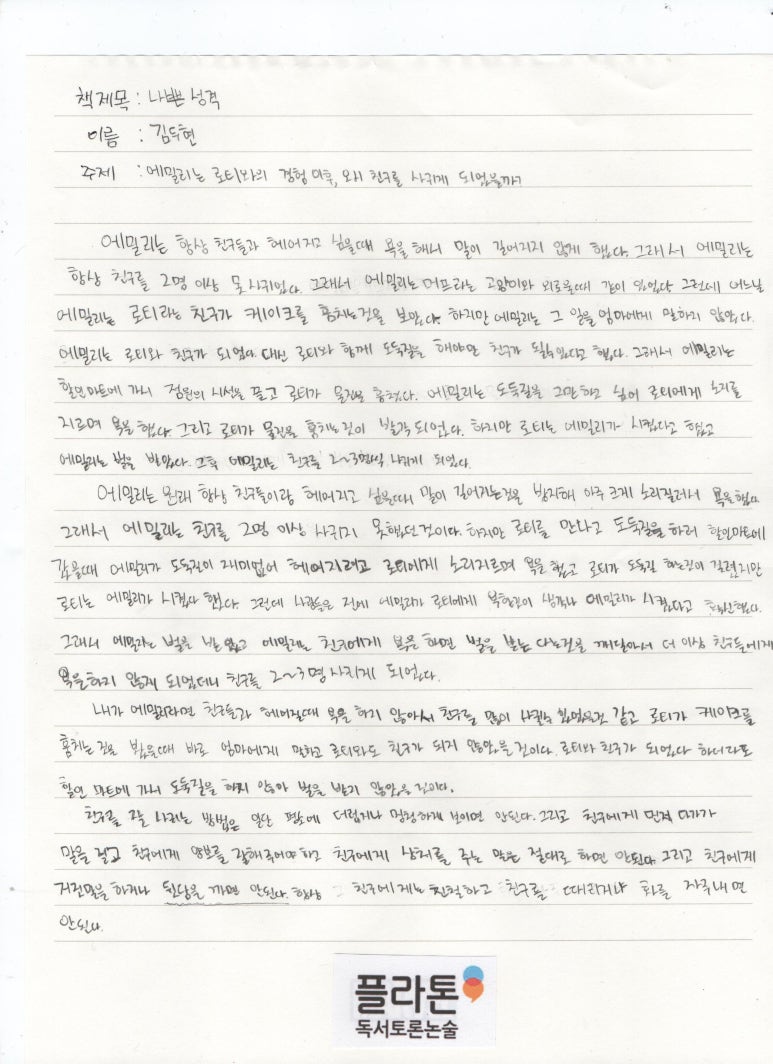 책제목 : 나쁜 성격
이름 : 김두현
주제 : 에밀리는 로티와의 경험 이후, 왜 친구를 사귀게 되었을까?
에밀리는 항상 친구들과 헤어지고 싶을때 욕을 해서 말이 길어지지 않게 했다. 그래서 에밀리는
항상 친구를 2명 이상 못 사귀었다. 그래서 에밀리는 머프라는 고양이와 외로울때 같이 있었다 그런데 어느날
에밀리는 로티라는 친구가 케이크를 훔치는것을 보았다. 하지만 에밀리는 그 일을 엄마에게 말하지 않았다.
에밀리는 로티와 친구가 되었다. 대신 로티와 함께 도둑질을 해야만 친구가 될수있다고 했다. 그래서 에밀리는
할인마트에 가서 점원의 시선을 끌고 로티가 물건을 훔쳤다. 에밀리는 도둑질을 그만하고 싶어 로티에게 소리를
지르며 욕을 했다. 그리고 로티가 물건을 훔치는것이 발각되었다. 하지만 로티는 에밀리가 시켰다고 했고
에밀리는 벌을 받았다. 그후 에밀리는 친구를 2~3명씩 사귀게 되었다.
에밀리는 원래 항상 친구들이랑 헤어지고 싶을때 말이 길어지는것을 방지해 아주 크게 소리질러서 욕을했다.
그래서 에밀리는 친구를 2명 이상 사귀지 못했던것이다. 하지만 로티를 만나고 도둑질을 하러 할인마트에
갔을때 에밀리가 도둑질이 재미없어 헤어지려고 로티에게 소리지르며 욕을 했고 로티가 도둑질 하는것이 걸렸지만
로티는 에밀리가 시켰다 했다. 그런데 사람들은 전에 에밀리가 로티에게 욕한것이 생각나 에밀리가 시켰다고 확신했다.
그래서 에밀리는 벌을 받았고 에밀리는 친구에게 욕을 하면 벌을 받는다는것을 깨달아서 더 이상 친구들에게
욕을하지 않게 되었더니 친구를 2~3명 사귀게 되었다.
내가 에밀리라면 친구들과 헤어질때 욕을 하지 않아서 친구를 많이 사귈수 있었을것 같고 로티가 케이크를
훔치는 것을 봤을때 바로 엄마에게 말하고 로티와도 친구가 되지 않았을 것이다. 로티와 친구가 되었다 하더라도
할인 마트에 가서 도둑질을 하지 않아 벌을 받지 않았을 것이다.
친구를 잘 사귀는 방법은 일단 평소에 더럽거나 멍청하게 보이면 안된다. 그리고 친구에게 먼저 다가가
말을 걸고 친구에게 양보를 잘해주어야 하고 친구에게 상처를 주는 말은 절대로 하면 안된다. 그리고 친구에게
거짓말을 하거나 뒷담을 까면 안된다. 항상 친구에게는 친절하고 친구를 때리거나 화를 자주내면
안된다.
플라톤
독서토론논술